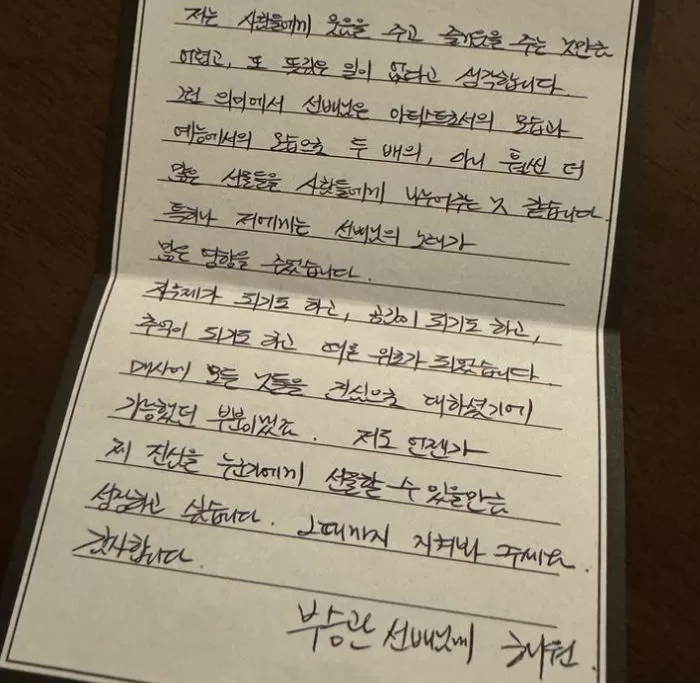 저는 사람들에게 웃음을 주고 즐거움을 주는 것만큼
어렵고, 또 뜻깊은 일이 없다고 생각합니다.
그런 의미에서 선배님은 아티스트로서의 모습과
예능에서의 모습으로 두 배의, 아니 훨씬 더
많은 선물들을 사람들에게 나누어주는 것 같습니다.
특히나 저에게는 선배님의 노래가
많은 영향을 주었습니다.
적수제가 되기도 하고, 공감이 되기도 하고,
추억이 되기도 하고 때론 위로가 되었습니다.
매사에 모든 것들을 진심으로 대하셨기에
가능했던 부분이겠죠. 저도 언젠가
제 진심을 누군가에게 선물할 수 있을만큼
성장하고 싶습니다. 그때까지 지켜봐 주세요.
감사합니다.
부승관 선배님께